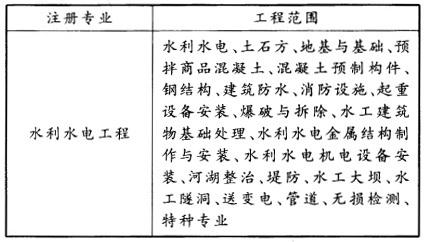 注册专业
工程范围
水利水电工程
水利水电、土石方、地基与基础、预
拌商品混凝土、混凝土预制构件、
钢结构、建筑防水、消防设施、起重
设备安装、爆破与拆除、水工建筑
物基础处理、水利水电金属结构制
作与安装、水利水电机电设备安
装、河湖整治、堤防、水工大坝、水
工隧洞、送变电、管道、无损检测、
特种专业